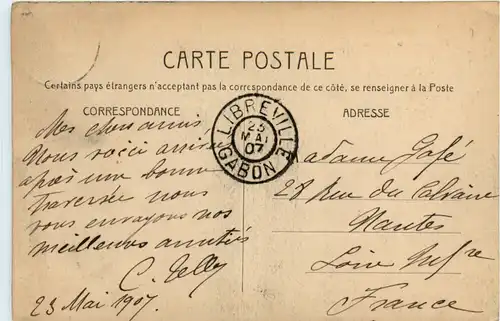 CARTE POSTALE
Certains pays étrangers n'acceptant pas la correspondance de ce côté, se renseigner à la Poste
CORRESPONDANCE
Mes chers amis
Nous voici arrivés
après une bonne
traversée nous
vous envoyons nos
meilleures amitiés
C. Telly
23 Mai 1907.
LIBREVILLE
23
MAI
07
GABON
ADRESSE
Madame Gafé
28 Rue du Calvaire
Nantes
Loire Infre
France